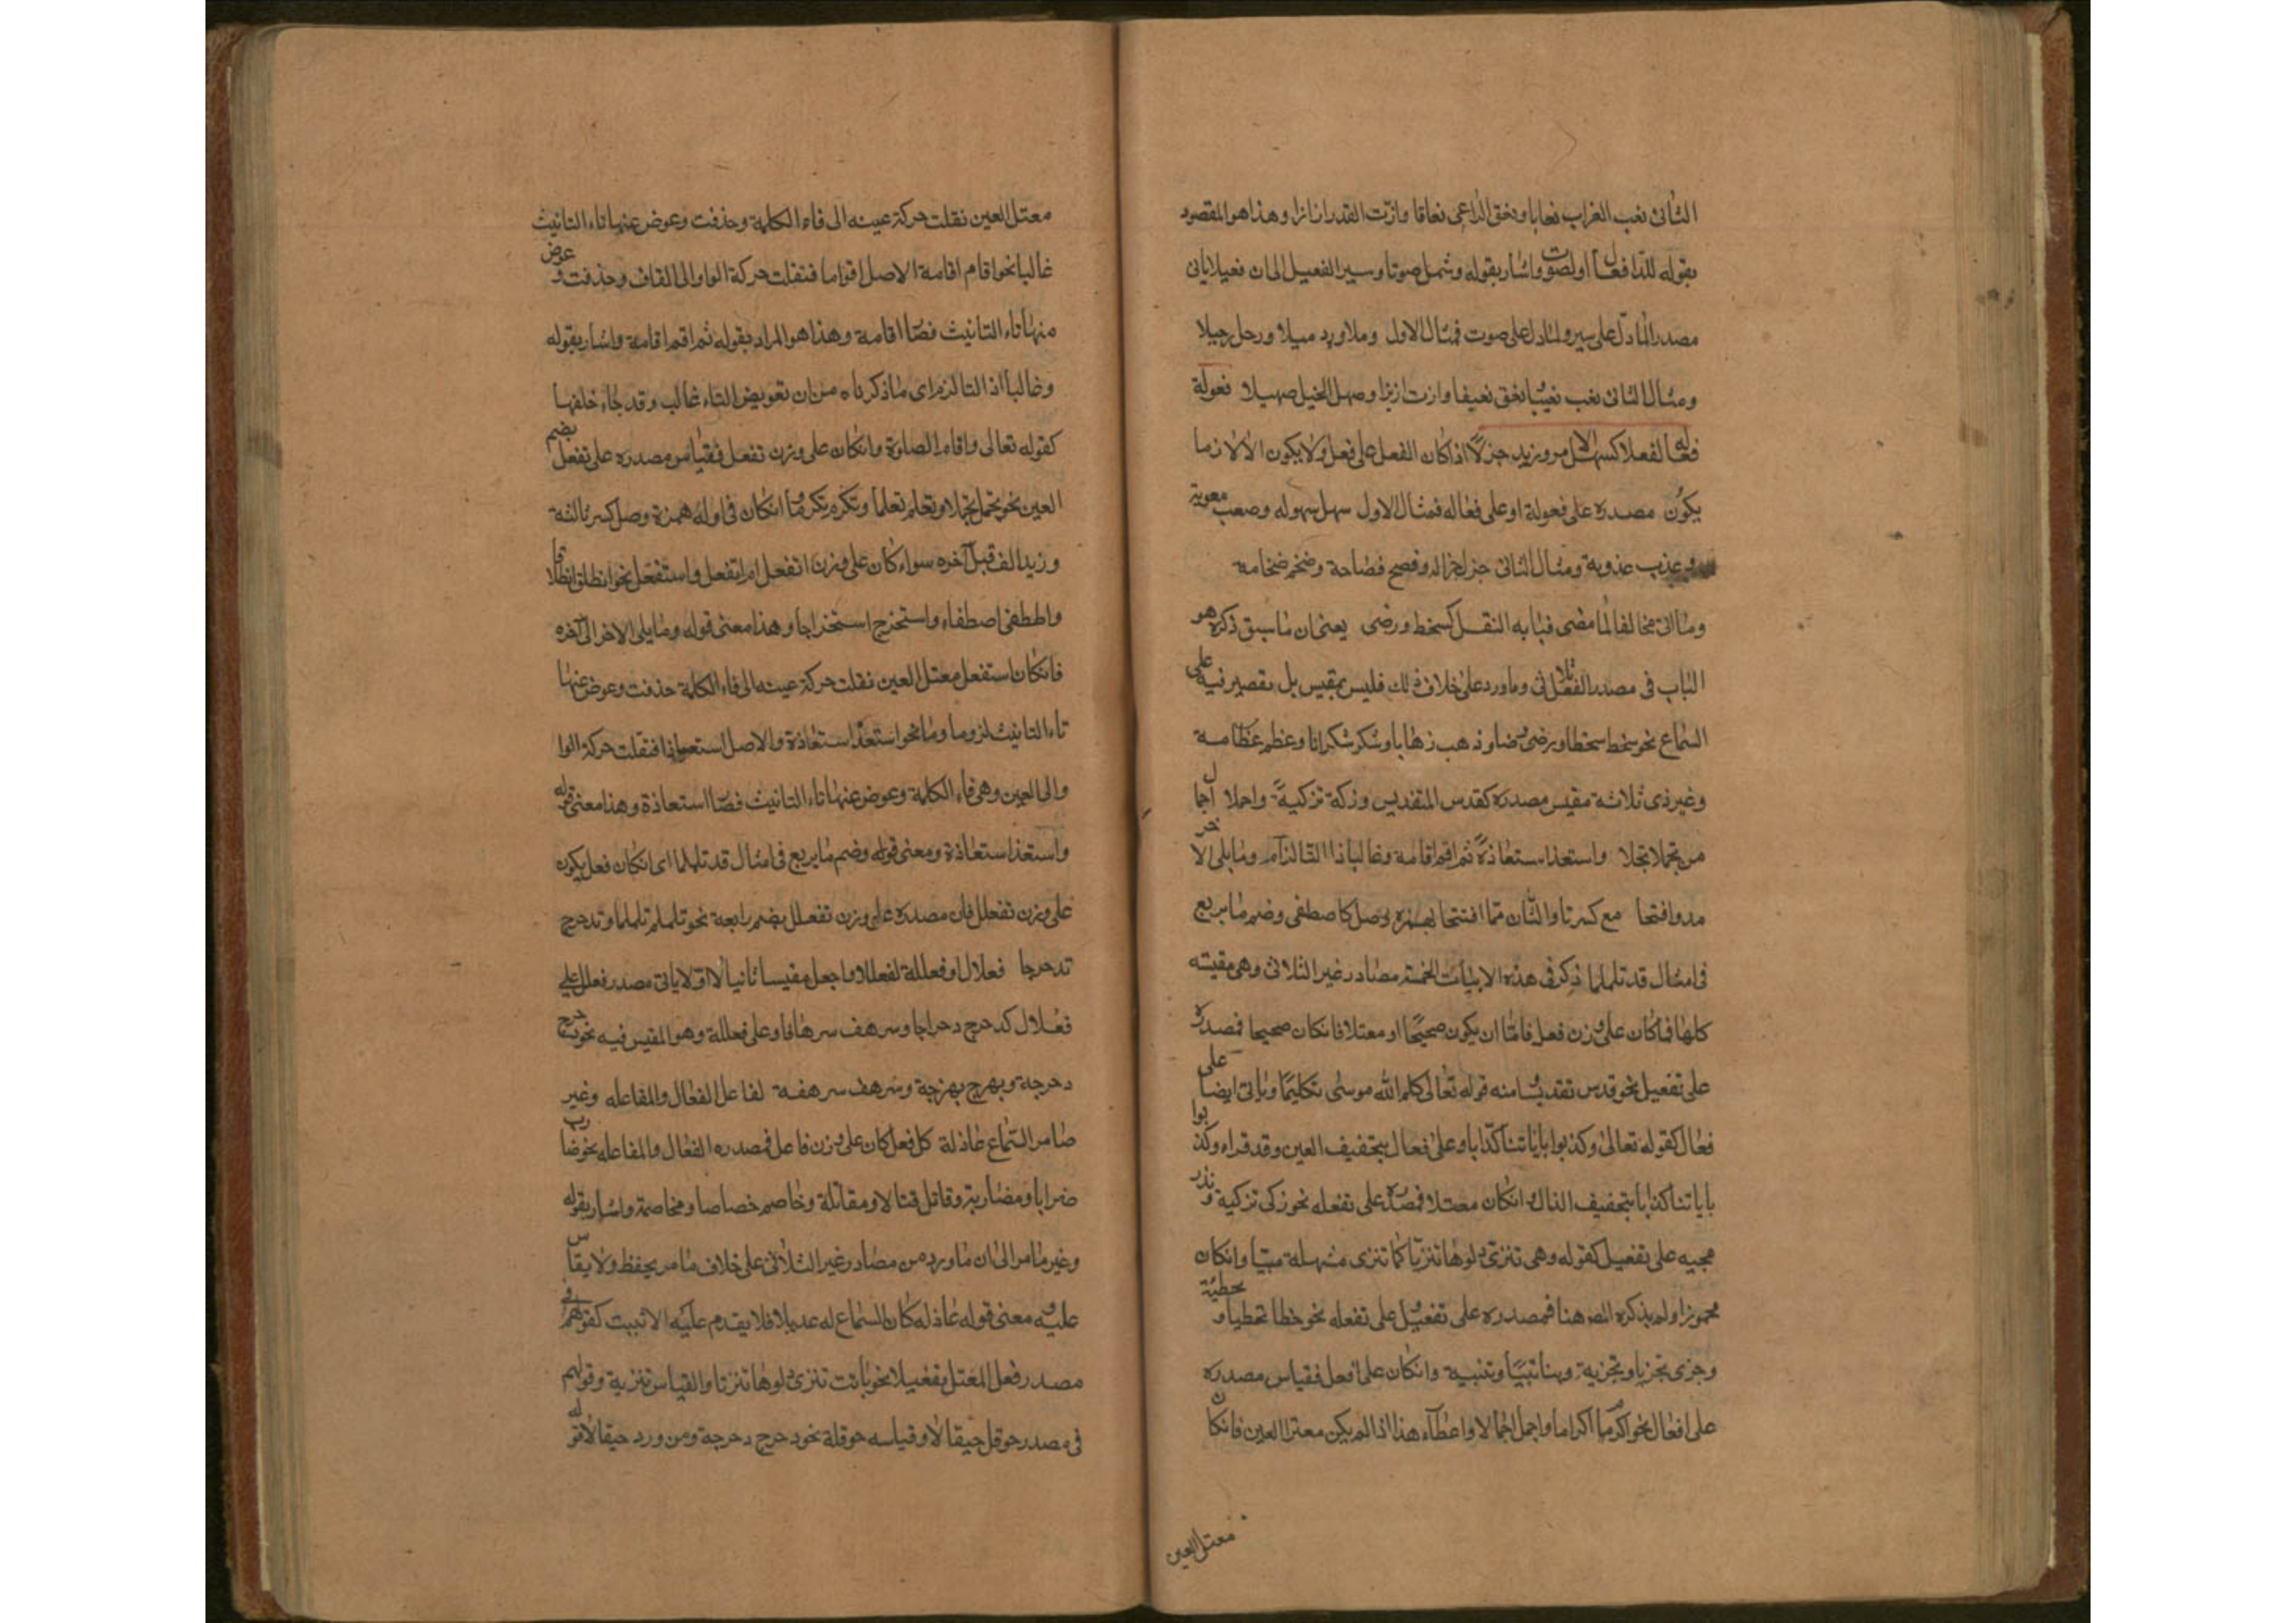 الثانى نعب الغراب نعابا ونعق الراعى نعاقا وازت القدر ازازا وهذا هو المقصود
بقوله للدا فعال او لصوت واشار بقوله وشمل صوتا وسيرا الفعيل الى ان فعيلا ياتى
مصدرا لما دل على سير ولما دل على صوت فمثال الاول وملا ورد ميلا ورحل رحيلا
ومثال الثانى نعب نعيبا نعق نعيقا وازت ازيزا وصهل الخيل صهيلا فعولة
فعاله لفعلا كسهل الامر وزيد جزلا اذا كان الفعل على فعل ولا يكون الا لازما
يكون مصدره على فعولة او على فعاله فمثال الاول سهل سهوله وصعب صعوبة
وعذب عذوبة ومثال الثانى جزل جزاله وفصح فصاحة وضخم ضخامة
وما اتى مخالفا لما مضى فبابه النقل كسخط ورضى يعنى ان ما سبق ذكره هو
الباب فى مصدر الفعل الثلاثى وما ورد على خلاف ذلك فليس بمقيس بل يقتصر فيه على
السماع نحو سخط سخطا ورضى رضا وذهب ذهابا وشكر شكرانا وعظم عظامة
وغير ذى ثلاثة مقيس مصدره كقدس التقديس وزكه تزكية واجملا اجمال
من تجملا تجملا واستعذ استعاذة ثم اقم اقامة وغالبا ذا التا لزم وما يلى الاخر
مد وافتحا مع كسر تلو الثان مما افتتحا بهمزة وصل كاصطفى وضم ما يربع
فى امثال قد تلملما ذكر فى هذه الابيات الخمسة مصادر غير الثلاثى وهى مقيسة
كلها فما كان على وزن فعل فاما ان يكون صحيحا او معتلا فان كان صحيحا فمصدره
على تفعيل نحو قدس تقديسا ومنه قوله تعالى وكلم الله موسى تكليما وياتى ايضا على
فعال كقوله تعالى وكذبوا باياتنا كذابا وعلى فعال بتخفيف العين وقد قراء وكذبوا
باياتنا كذابا بتخفيف الذال وان كان معتلا فمصدره على تفعله نحو زكى تزكية وندر
مجيه على تفعيل كقوله وهى تنزى دلوها تنزيا كما تنزى شهلة صبيا وان كان
مهموزا ولم يذكره المص هنا فمصدره على تفعيل وعلى تفعله نحو خطا تخطيا وتخطئة
وجزى تجزيا وتجزية ونبا تنبيا وتنبية وان كان على افعل فقياس مصدره
على افعال نحو اكرم اكراما واجمل اجمالا واعطاء هذا اذا لم يكن معتل العين فان كان
معتل العين
معتل العين نقلت حركة عينه الى فاء الكلمة وحذفت وعوض عنها تاء التانيث
غالبا نحو اقام اقامة الاصل اقواما فنقلت حركة الواو الى القاف وحذفت وعوض
منها تاء التانيث فصار اقامة وهذا هو المراد بقوله ثم اقم اقامة واشار بقوله
وغالبا اذا التا لزم اى ما ذكرناه من ان تعويض التاء غالب وقد جاء خلفها
كقوله تعالى واقام الصلوة وان كان على وزن تفعل فقياس مصدره على تفعل بضم
العين نحو تجمل تجملا وتعلم تعلما وتكرم تكرما وان كان فى اوله همزة وصل كسر ثالثه
وزيد الف قبل اخره سواء كان على وزن انفعل ام افتعل واستفعل نحو انطلق انطلاقا
واصطفى اصطفاء واستخرج استخراجا وهذا معنى قوله وما يلى الاخر الى اخره
فان كان استفعل معتل العين نقلت حركة عينه الى فاء الكلمة حذفت وعوض عنها
تاء التانيث لزوما وما نحو استعذ استعاذة والاصل استعواذا فنقلت حركة الوا
والى العين وهى فاء الكلمة وعوض عنها تاء التانيث فصار استعاذة وهذا معنى قوله
واستعذ استعاذة ومعنى قوله وضم ما يربع فى امثال قد تلملما اى ان كان فعل يكون
على وزن تفعلل فان مصدره على وزن تفعلل بضم رابعه نحو تلملم تلملما وتدحرج
تدحرجا فعلال او فعللة لفعللا واجعل مقيسا ثانيا لا اولا ياتى مصدر فعلل على
فعلال كدحرج دحراجا وسرهف سرهافا وعلى فعللة وهو المقيس فيه نحو دحرج
دحرجة وبهرج بهرجة وسرهف سرهفة لفاعل الفعال والمفاعله وغير
ما مر السماع عادله كل فعل كان على وزن فاعل فمصدره الفعال والمفاعله نحو ضارب
ضرابا ومضاربة وقاتل قتالا ومقاتلة وخاصم خصاما ومخاصمة واشار بقوله
وغير ما مر الى ان ما ورد من مصادر غير الثلاثى على خلاف ما مر يحفظ ولا يقاس
عليه ومعنى قوله عادله كان السماع له عديلا فلا يقدم عليه الا ثبت كقولهم فى
مصدر فعل المعتل تفعيلا نحو باتت تنزى دلوها تنزيا والقياس تنزية وقولهم
فى مصدر حوقل حيقالا وقياسه حوقلة نحو دحرج دحرجة ومن ورد حيقالا قوله